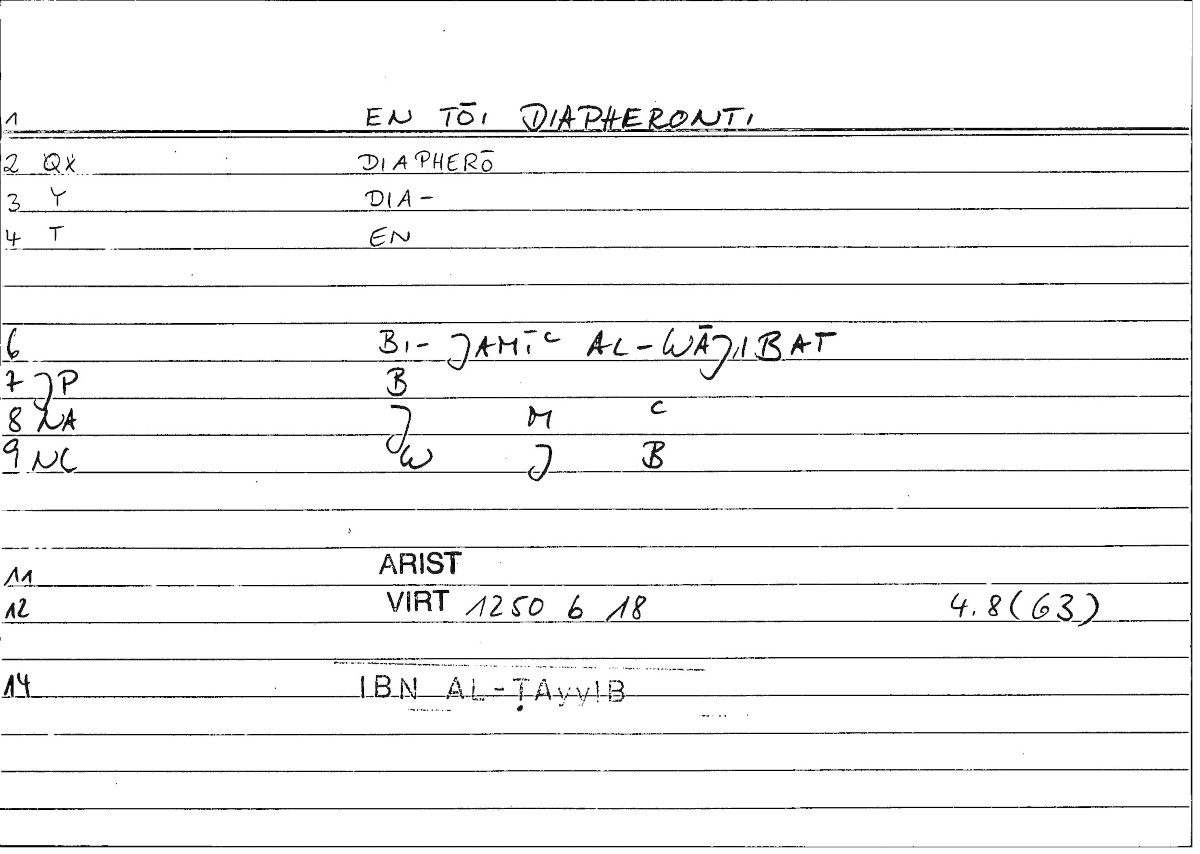 1 EN TŌI DIAPHERONTI
2 QX DIAPHERŌ
3 Y DIA-
4 T EN
6 BI- JAMĪC AL-WĀJIBAT
7 JP B
8 NA J M C
9 NC W J B
11 ARIST
12 VIRT 1250 6 18 4.8(63)
14 IBN AL-ṬAyyIB